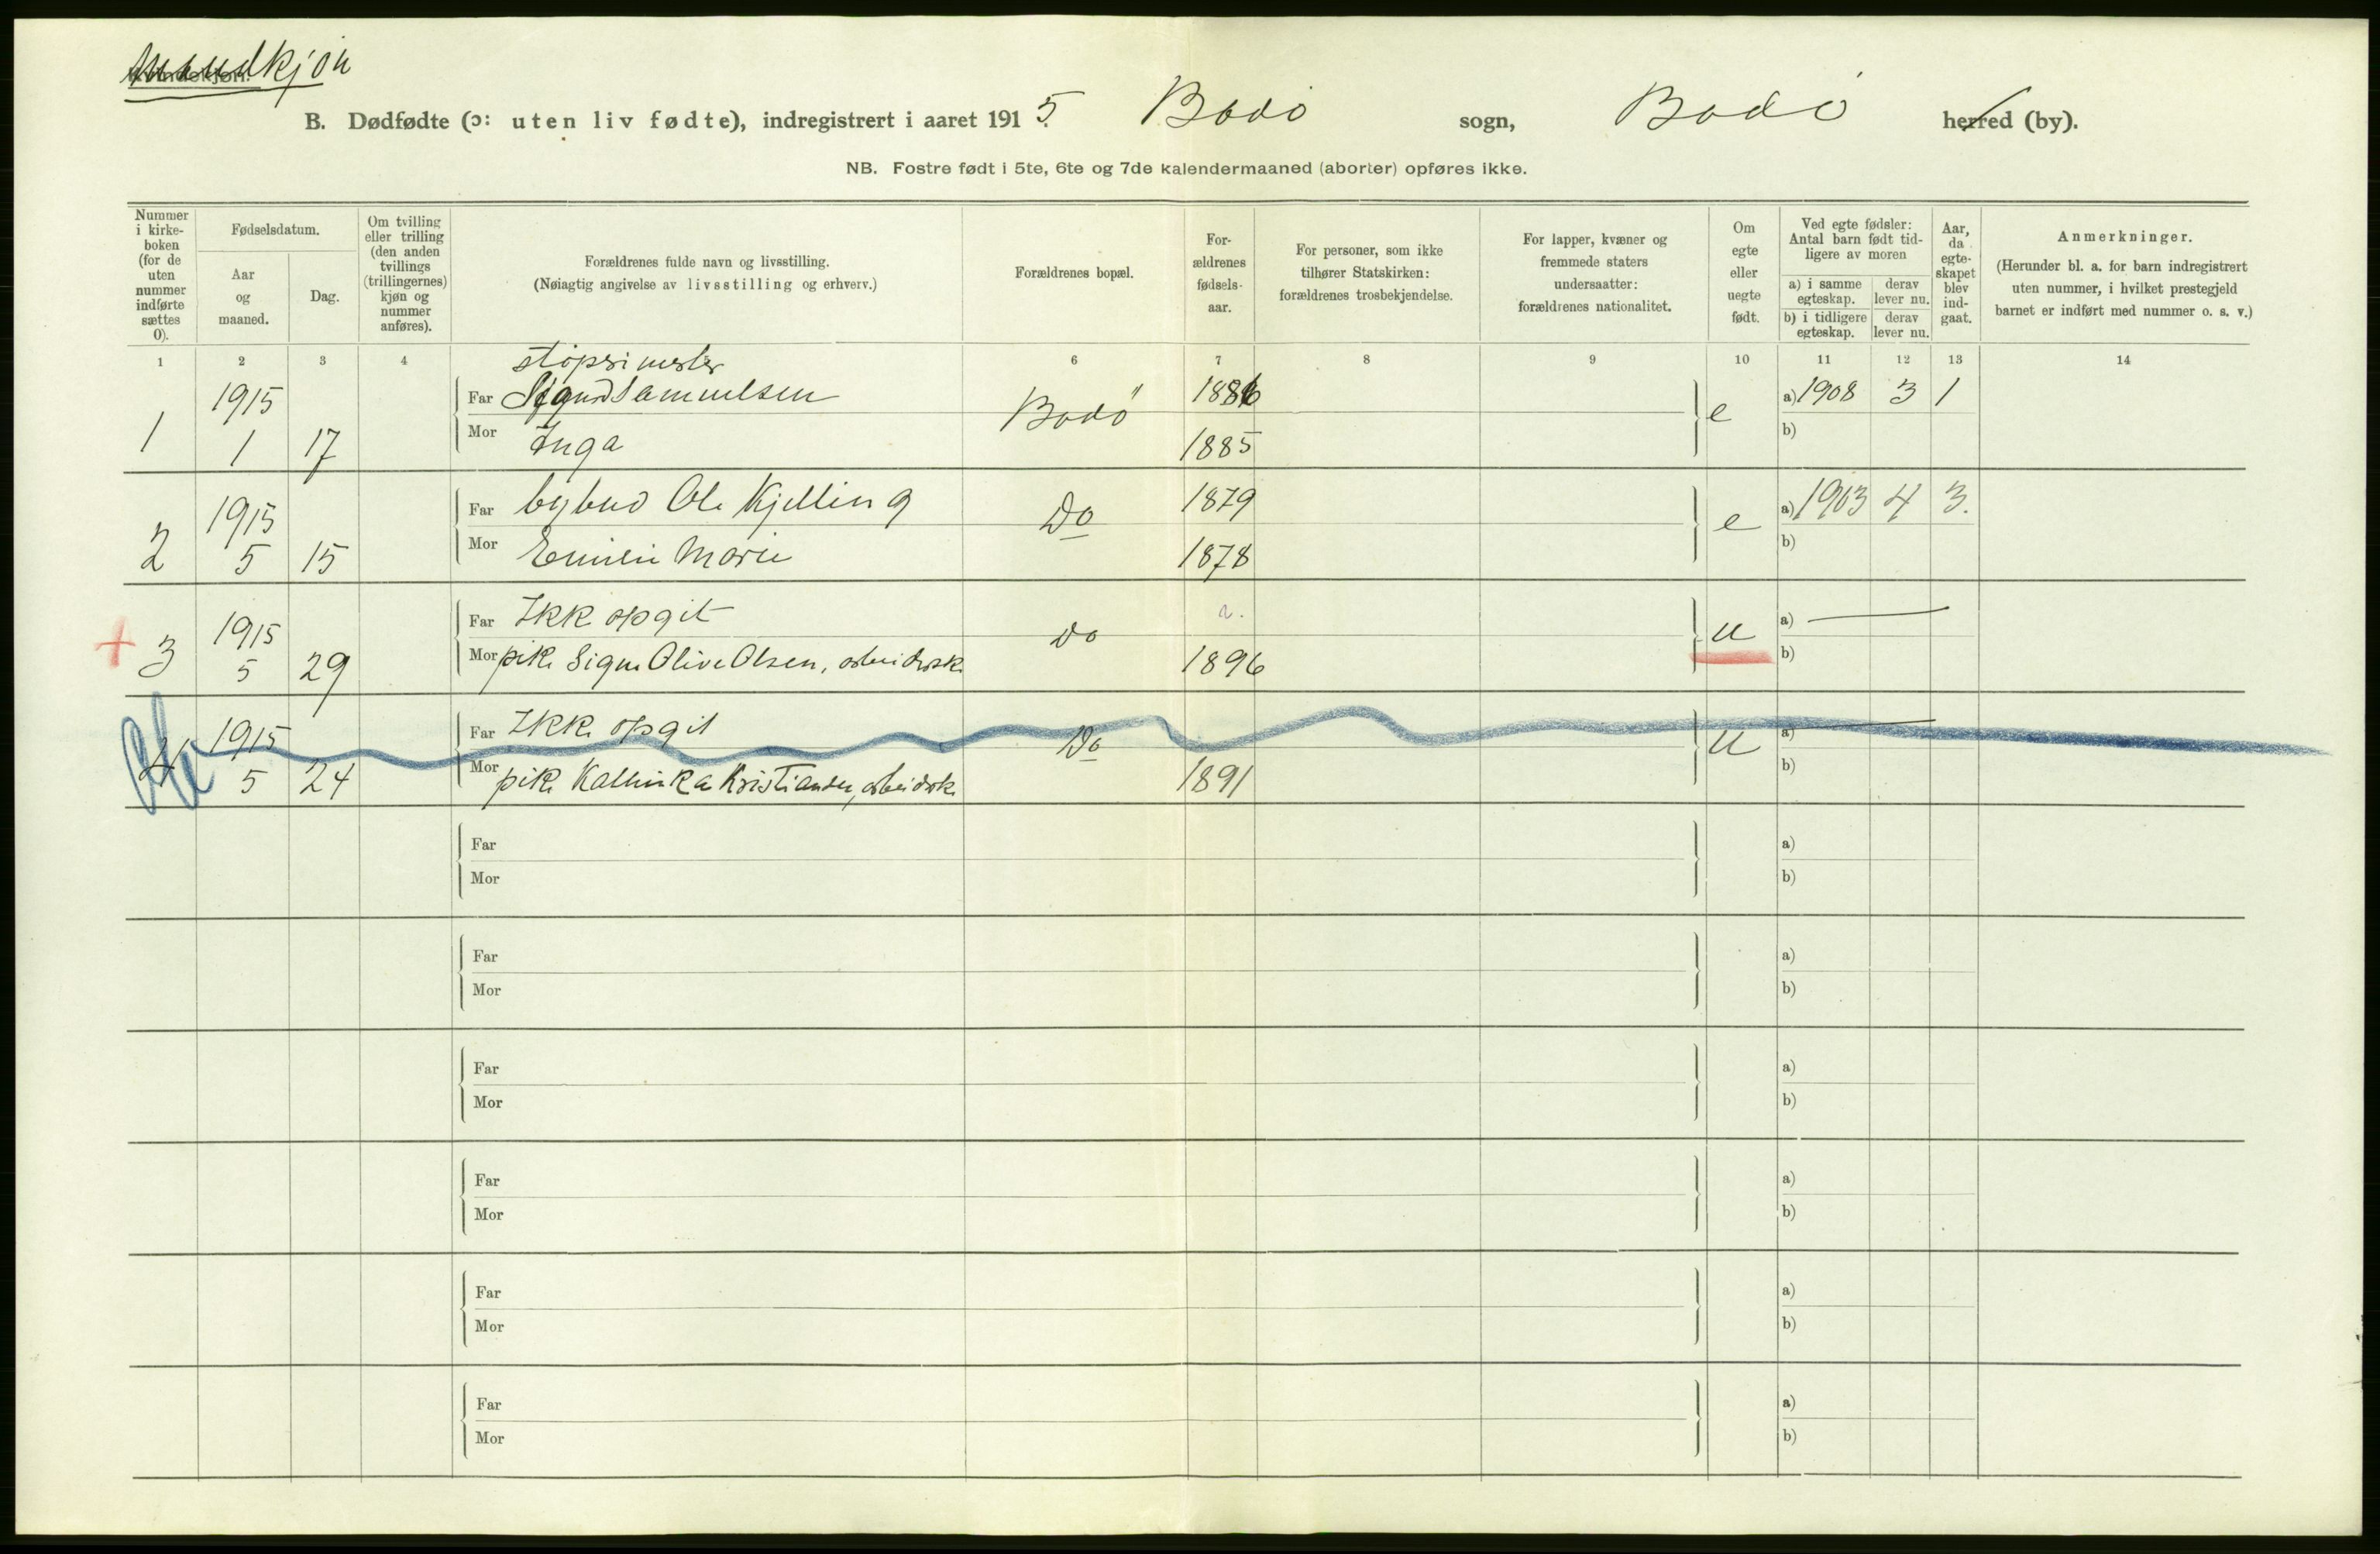 Mandkjøn
B. Dødfødte (ɔ: uten liv fødte), indregistrert i aaret 1915. Bodø sogn, Bodø herred (by).
NB. Fostre født i 5te, 6te og 7de kalendermaaned (aborter) opføres ikke.
Nummer i kirke-boken (for de uten nummer indførte sættes 0).
Fødselsdatum.
Aar og maaned.
Dag.
Om tvilling eller trilling (den anden tvillings (trillingernes) kjøn og nummer anføres).
Forældrenes fulde navn og livsstilling.
(Nøiagtig angivelse av livsstilling og erhverv.)
Forældrenes bopæl.
For-ældrenes fødsels-aar.
For personer, som ikke tilhører Statskirken: forældrenes trosbekjendelse.
For lapper, kvæner og fremmede staters undersaatter: forældrenes nationalitet.
Om egte eller uegte født.
Ved egte fødsler: Antal barn født tid-ligere av moren
a) i samme egteskap. derav lever nu.
b) i tidligere egteskap. derav lever nu.
Aar, da egte-skapet blev ind-gaat.
Anmerkninger.
(Herunder bl. a. for barn indregistrert uten nummer, i hvilket prestegjeld barnet er indført med nummer o. s. v.)
1 2 3 4 6 7 8 9 10 11 12 13 14
støperimester
1915 Far Samuelsen Bodø 1886 e a) 1908 3 1
1 1 17 Mor Inga 1885 b)
1915 Far bybud Ole Kjelling Do 1879 e a) 1903 4 3.
2 5 15 Mor Emilie Marie 1878 b)
1915 Far Ikke opgit Do u a) —
3 5 29 Mor pike Signe Olive Olsen, arbeiderske 1896 b)
1915 Far Ikke opgit Do u a) —
4 5 24 Mor pike Kristiansen, arbeiderske 1891 b)
Far a)
Mor b)
Far a)
Mor b)
Far a)
Mor b)
Far a)
Mor b)
Far a)
Mor b)
Far a)
Mor b)